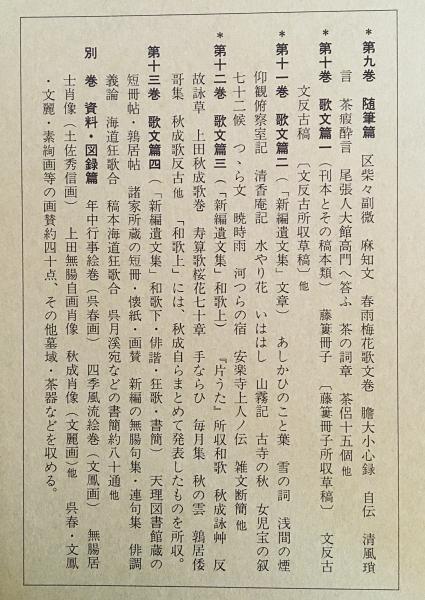 ＊第九巻 随筆篇 区柴々副微 麻知文 春雨梅花歌文巻 膽大小心録 自伝 清風瑣
言 茶瘕酔言 尾張人大館高門へ答ふ 茶の詞章 茶侶十五個 他
＊第十巻 歌文篇一（刊本とその稿本類） 藤簍冊子 〔藤簍冊子所収草稿〕 文反古
文反古稿 〔文反古所収草稿〕他
＊第十一巻 歌文篇二（「新編遺文集」文章） あしかひのこと葉 雪の詞 浅間の煙
仰観俯察室記 清香庵記 水やり花 いははし 山霧記 古寺の秋 女児宝の叙
七十二候 つゝら文 暁時雨 河つらの宿 安楽寺上人ノ伝 雑文断簡 他
＊第十二巻 歌文篇三（「新編遺文集」和歌上） 『片うた』所収和歌 秋成詠艸 反
故詠草 上田秋成歌巻 寿算歌桜花七十章 手ならひ 毎月集 秋の雲 鶉居倭
哥集 秋成歌反古 他 「和歌上」には、秋成自らまとめて発表したものを所収。
第十三巻 歌文篇四（「新編遺文集」和歌下・俳諧・狂歌・書簡） 天理図書館蔵の
短冊帖・鶉居帖 諸家所蔵の短冊・懐紙・画賛 新編の無腸句集・連句集 俳調
義論 海道狂歌合 稿本海道狂歌合 呉月溪宛などの書簡約八十通 他
別 巻 資料・図録篇 年中行事絵巻（呉春画） 四季風流絵巻（文鳳画） 無腸居
士肖像（土佐秀信画） 上田無腸自画肖像 秋成肖像（文麗画）他 呉春・文鳳
・文麗・素絢画等の画賛約四十点、その他墓域・茶器などを収める。